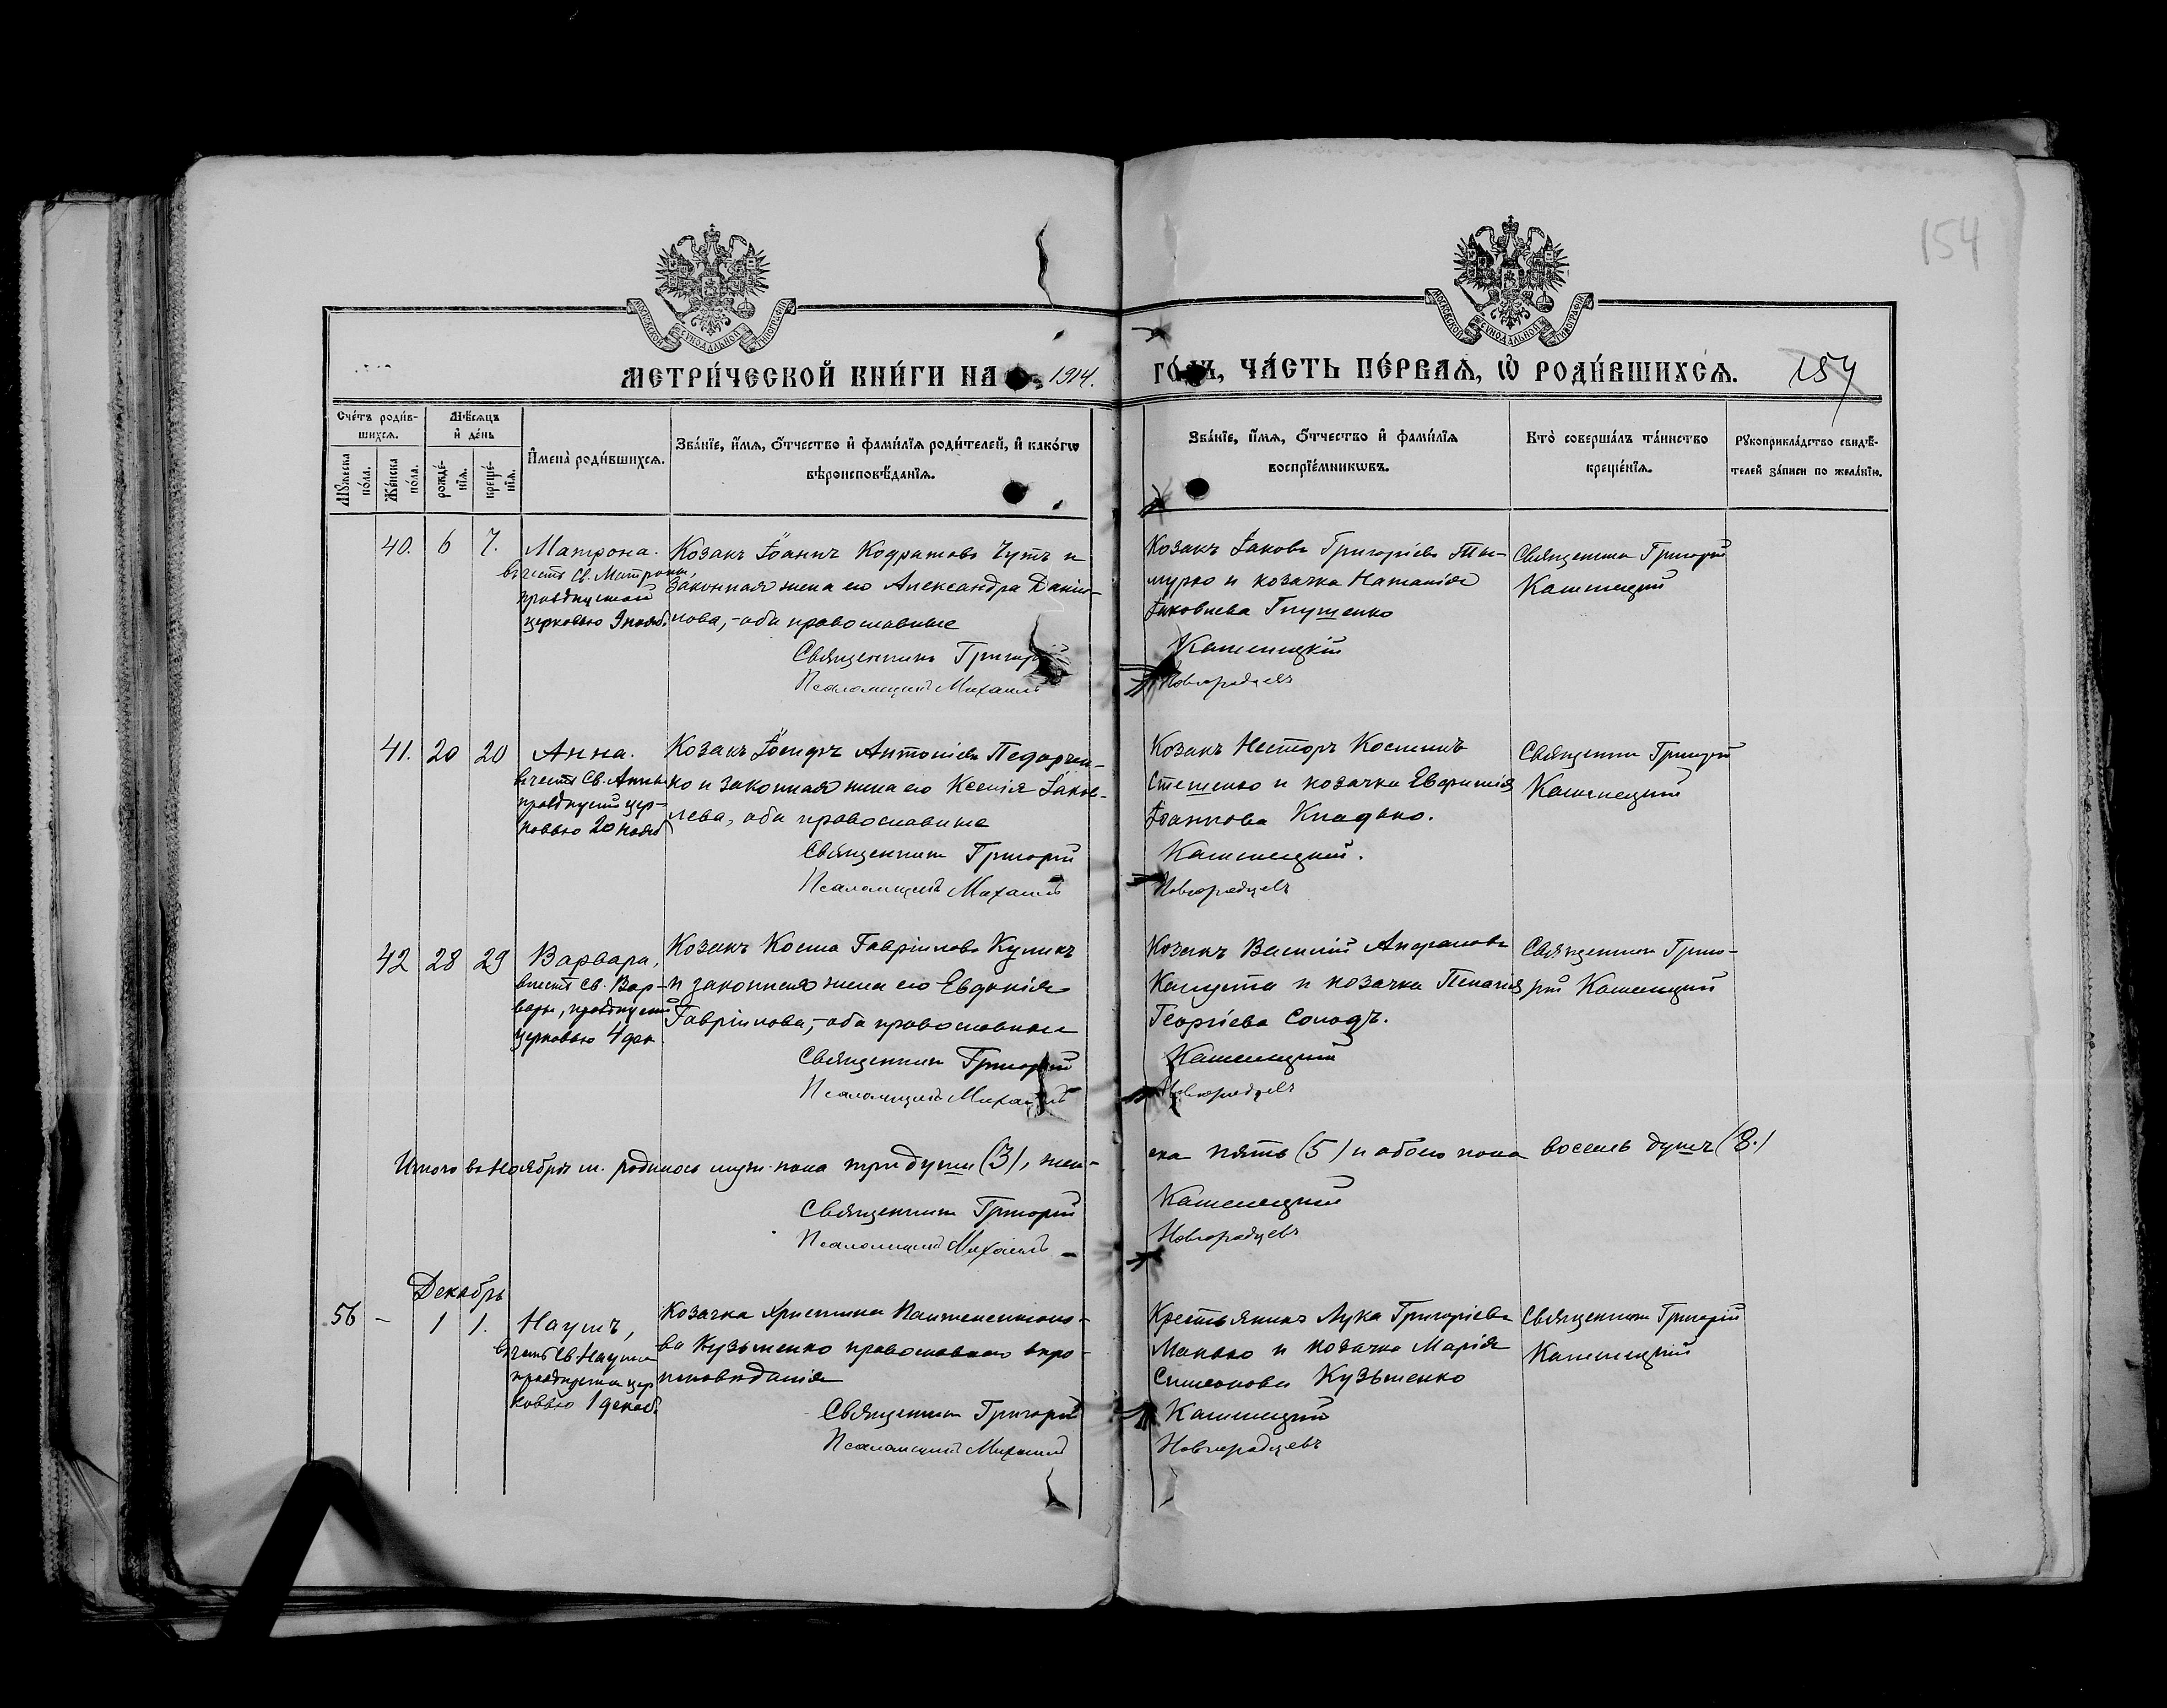 154
МОСКОВСКОЙ СѴНОДАЛЬНОЙ ТИПОГРАФІИ
МОСКОВСКОЙ СѴНОДАЛЬНОЙ ТИПОГРАФІИ
МЕТРИ́ЧЕСКОЙ КНИ́ГИ НА 1914.
ГО́ДЪ, ЧА́СТЬ ПЕ́РВАѦ, Ѡ҆ РОДИ́ВШИХСѦ. 154
Сче́тъ роди́в-
шихсѧ.
Мѣ́сѧцъ
и҆ де́нь
И҆мена̀ роди́вшихсѧ.
Зва́нїе, и҆́мѧ, ѻ҆́тчество и҆ фами́лїѧ роди́телей, и҆ како́гѡ
вѣроисповѣ́данїѧ.
Мꙋ́жеска
по́ла.
Же́нска
по́ла.
рожде́-
нїѧ.
креще́-
нїѧ.
Зва́нїе, и҆́мѧ, ѻ҆́тчество и҆ фами́лїѧ
воспрїе́мникѡвъ.
Кто̀ соверша́лъ та́инство
креще́нїѧ.
Рꙋкоприкла́дство свидѣ́-
телей за́писи по жела́нїю.
40. 6 7. Матрона.
въ честь Св. Матроны,
празднуемой
церковью 9 нояб.
Козакъ Іоаннъ Кодратовъ Чутъ и
законная жена его Александра Дании-
лова, - оба православные
Священникъ Григорій
Псаломщикъ Михаилъ
Козакъ Іаковъ Григоріевъ
и козачка Наталія
Іаковлева Глущенко
Кашницкій
Новгородцевъ
Священникъ Григорій
Кашницкій
41. 20 20 Анна.
въ честь Св. Анны
празднуем цер-
ковью 20 нояб
Козакъ Іосифъ Антоніевъ Педорчен-
ко и законная жена его Ксенія Іаков-
лева, оба православные
Священникъ Григорій
Псаломщикъ Михаилъ
Козакъ Несторъ Косминъ
Стешенко и козачка Евфимія
Іоаннова Кладько.
Кашницкій.
Новгородцевъ
Священникъ Григорій
Кашницкій
42 28 29 Варвара,
въ честь Св. Вар-
вары, празднуемой
церковью 4 дек.
Козакъ Косма Гавріиловъ Куликъ
и законная жена его Евдокія
Гавріилова, - оба православные
Священникъ Григорій
Псаломщикъ Михаилъ
Козакъ Василій
Капуста и козачка Пелагія
Георгіева Солодъ.
Кашницкій
Новгородцевъ
Священникъ Григо-
рій Кашницкій
Итого въ Ноябрѣ м. родилось муж. пола три души (3), жен-
ска пять (5) и обоего пола восемь душъ (8.)
Священникъ Григорій
Псаломщикъ Михаилъ
Кашницкій
Новгородцевъ
Декабрь
56 - 1 1. Наумъ,
въ честь Св. Наума
празднуема цер
ковью 1 декаб.
Козачка Христина Пантелеимоно-
ва Кузьменко православнаго вѣро-
исповѣданія
Священникъ Григорій
Псаломщикъ Михаилъ
Крестьянинъ Лука Григоріевъ
Манько и козачка Марія
Симеонова Кузьменко
Кашницкій
Новгородцевъ
Священникъ Григорій
Кашницкій